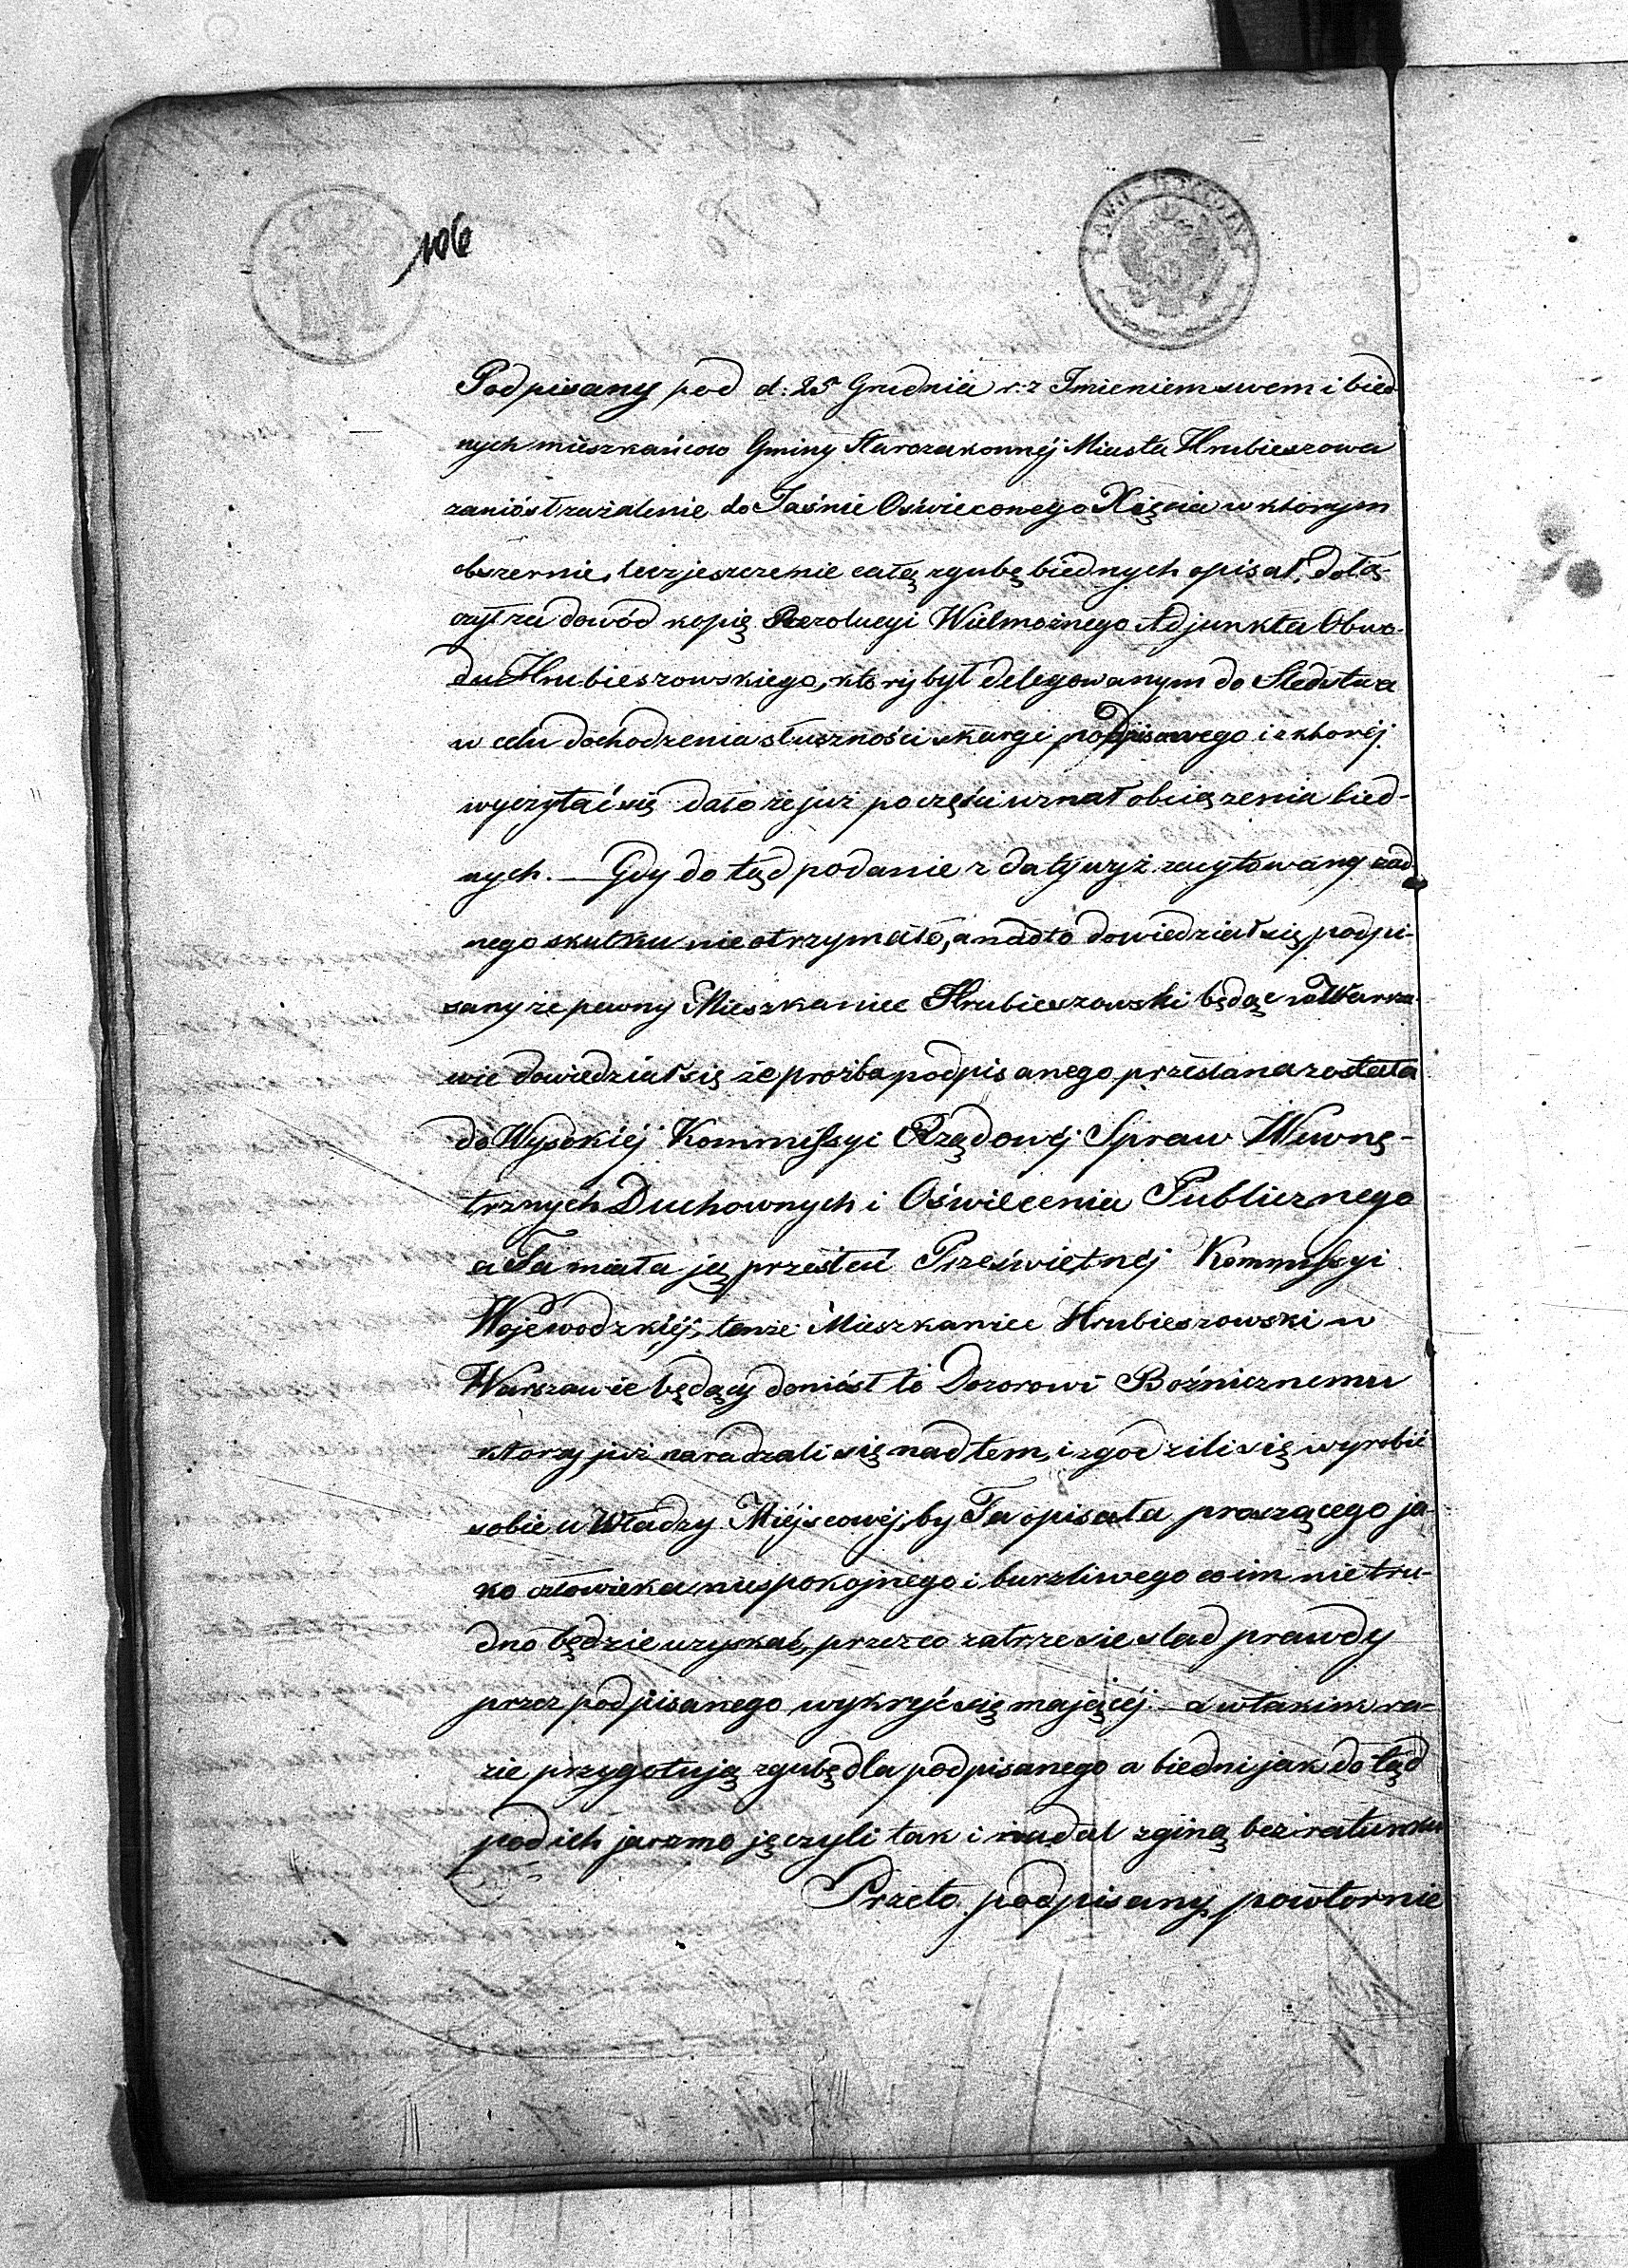 106
Podpisany pod d: 25 Grudnia r: z Imieniem swem i bied-
nych mieszkańców Gminy Starozakonnéj Miasta Hrubieszowa
zaniósł zażalenie do Jaśnie Oświeconego Xięcia w którym
obszernie, lecz jeszcze nie całą zgubę biednych opisał, dołą-
czył za dowód kopię Rezolucyi Wielmożnego Adjunkta Obwo-
du Hrubieszowskiego, który był delegowanym do Sledstwa
w celu dochodzenia słuszności skargi podpisanego i z któréj
wyczytać się dało że już po części uznał obciążenia bied-
nych. — Gdy do tąd podanie z daty wyż zacytowany żad-
nego skutku nie otrzymało, a nadto dowiedział się podpi-
sany że pewny Mieszkaniec Hrubieszowski będąc w Warsza-
wie dowiedział się że prożba podpisanego przesłana została
do Wysokiéj Kommissyi Rządowéj Spraw Wewnę-
trznych Duchownych i Oświecenia Publicznego
a Ta miała ją przesłać Prześwietnéj Kommissyi
Wojewodzkiéj, tenże Mieszkaniec Hrubieszowski w
Warszawie będący doniósł to Dozorowi Bożnicznemu
którzy już naradzali się nad tem, i zgodzili się wyrobić
sobie u Władzy Miéjscowéj, by Ta opisała proszącego ja-
ko człowieka niespokojnego i burzliwego co im nie tru-
dno będzie uzyskać, przez co zatrze sie slad prawdy
przez podpisanego wykryć się mającéj. — a w takim ra-
zie przygotują zgubę dla podpisanego a biedni jak do tąd
pod ich jarzmo jęczyli tak i nadal zginą bez ratunku
Przeto podpisany powtornie